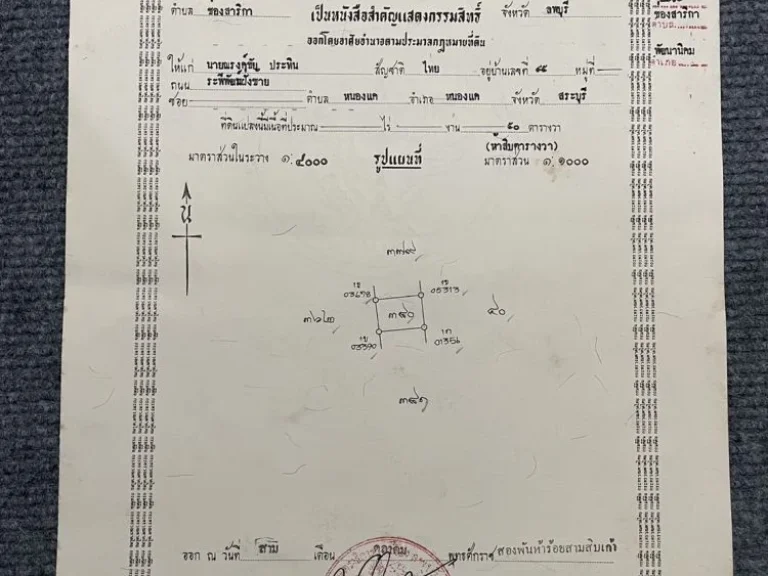 ตำบล ช่องสาริกา เป็นหนังสือสำคัญแสดงกรรมสิทธิ์ จังหวัด ลพบุรี ช่องสาริกา
ออกโดยอาศัยอำนาจตามประมวลกฎหมายที่ดิน
พัฒนานิคม
ให้แก่ ประทิน สัญชาติ ไทย อยู่บ้านเลขที่ ๔๔ หมู่ที่
ถนน
ซอย ตำบล หนองแค อำเภอ หนองแค จังหวัด สระบุรี
ที่ดินแปลงนี้มีเนื้อที่ประมาณ ไร่ งาน ๕๐ ตารางวา
(ห้าสิบตารางวา)
มาตราส่วนในระวาง ๑:๔๐๐๐ รูปแผนที่ มาตราส่วน ๑:๑๐๐๐
น
๓๓๙
05313
๓๔๐ ๔๐
03390 01356
๓๔๑
ออก ณ วันที่ สาม เดือน ตุลาคม พุทธศักราช สองพันห้าร้อยสามสิบเก้า